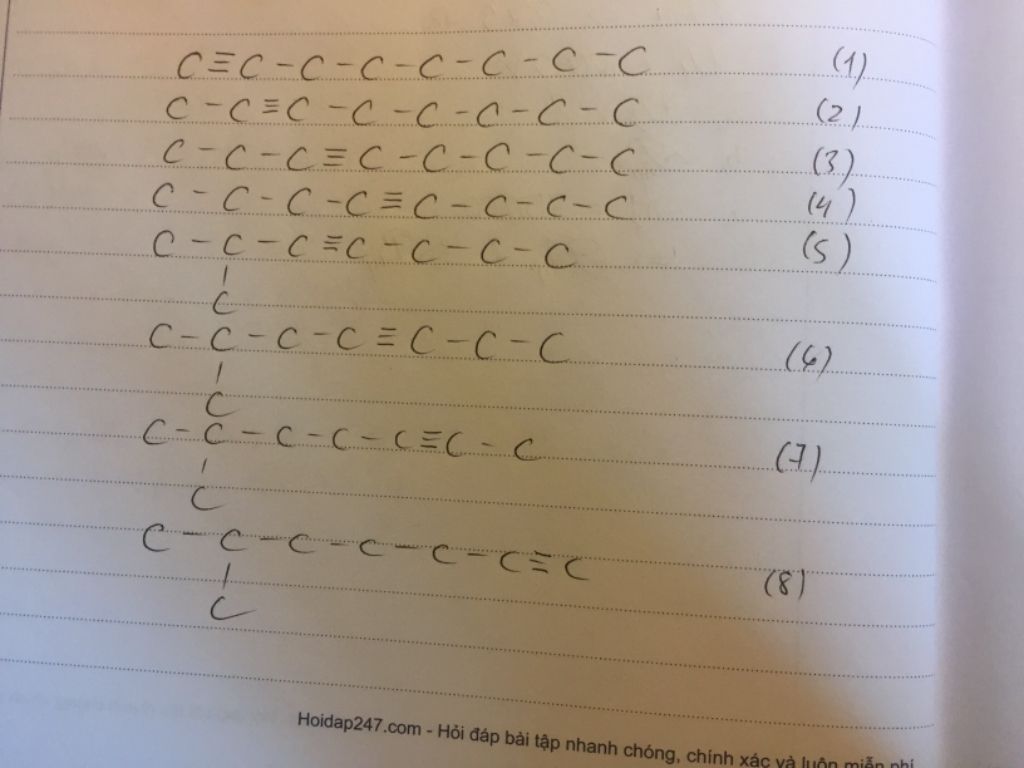 C≡C-C-C-C-C-C-C (1)
C-C≡C-C-C-C-C-C (2)
C-C-C≡C-C-C-C-C (3)
C-C-C-C≡C-C-C-C (4)
C-C-C≡C-C-C-C (5)
|
C
C-C-C-C≡C-C-C (6)
|
C
C-C-C-C-C≡C-C (7)
|
C
C-C-C-C-C-C≡C (8)
|
C
Hoidap247.com - Hỏi đáp bài tập nhanh chóng, chính xác và luôn miễn phí